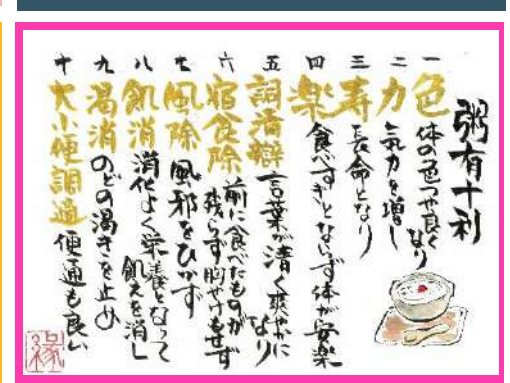 粥有十利
一 色 体の色つや良くなり
二 力 気力を増し
三 寿 長命となり
四 楽 食べすぎとならず体が安楽
五 詞清辯 言葉が清く爽やかになり
六 宿食除 前に食べたものが残らず胸やけもせず
七 風除 風邪をひかず
八 飢消 消化よく栄養となって飢えを消し
九 渇消 のどの渇きを止め
十 大小便調適 便通も良い
縁